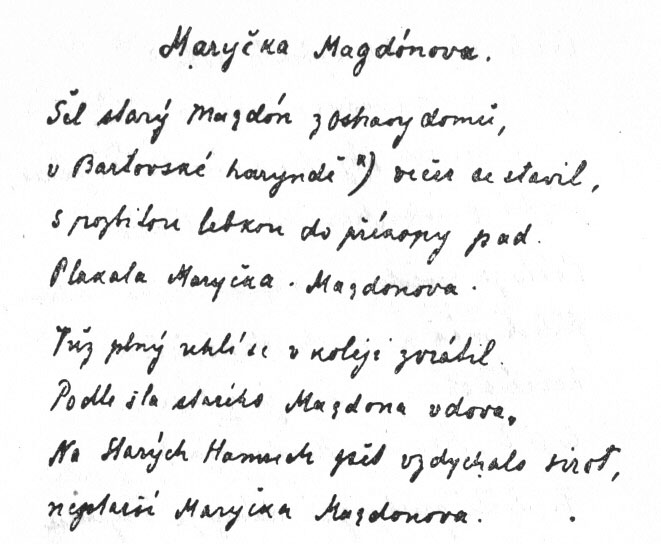 Maryčka Magdónova.
Šel starý Magdón z Ostravy domů,
v Bartovské haryndě x) večer se stavil,
s rozbitou lebkou do příkopy pad.
Plakala Maryčka Magdonova.
Vůz plný uhlí se v koleji zvrátil.
Podle šla starého Magdona vdova.
Na Starých Hamrech pět vzdychalo sirot,
nejstarší Maryčka Magdonova.